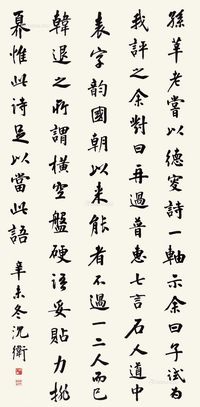 孫莘老嘗以德叟詩一軸示余曰子試為
我評之余對曰再過普惠七言石人道中
表字韵國朝以来能者不過一二人而已
韓退之所謂橫空盤硬语妥貼力排
奡惟此诗足以當此語
辛未冬沈衛